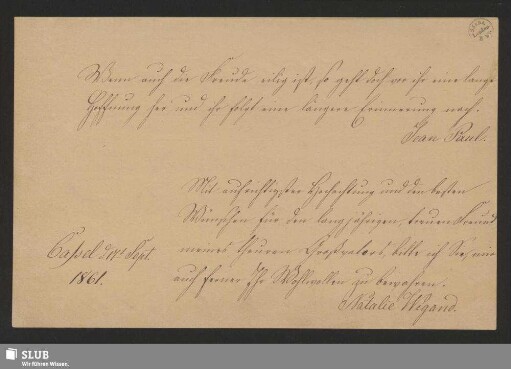 Wenn auch die Freude eilig ist, so geht doch vor ihr eine lange
Hoffnung her und ihr folgt eine längere Erinnerung nach.
Jean Paul.
Mit aufrichtigster Hochachtung und den besten
Wünschen für den langjährigen, treuen Freund
meines theuren Großvaters, bitte ich Sie, mir
auch ferner Ihr Wohlwollen zu bewahren.
Natalie Wigand.
Cassel Sept.
1861.
SLUB
Wir führen Wissen.